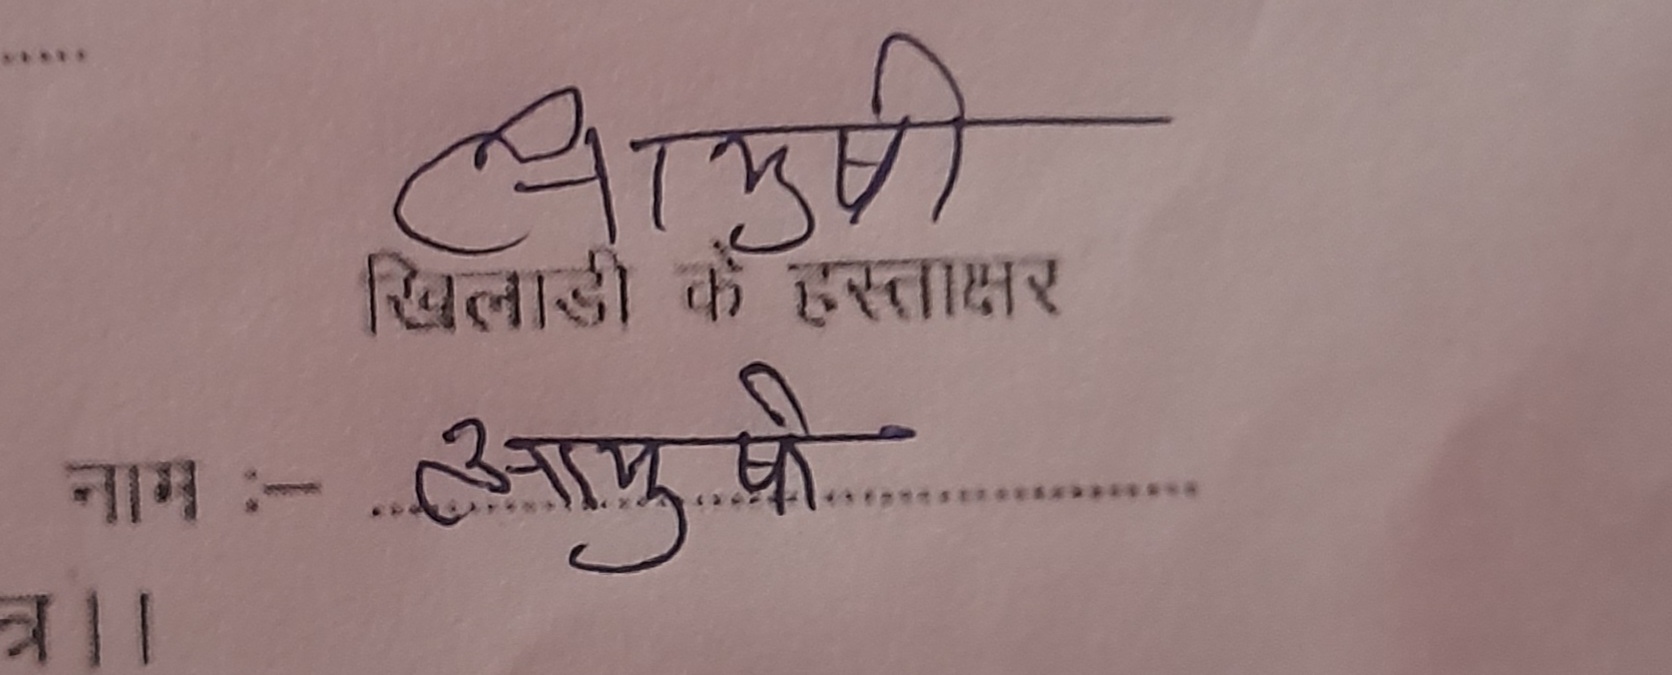 ........
आयुषी
खिलाडी के हस्ताक्षर
नाम :- आयुषी
त्र।।